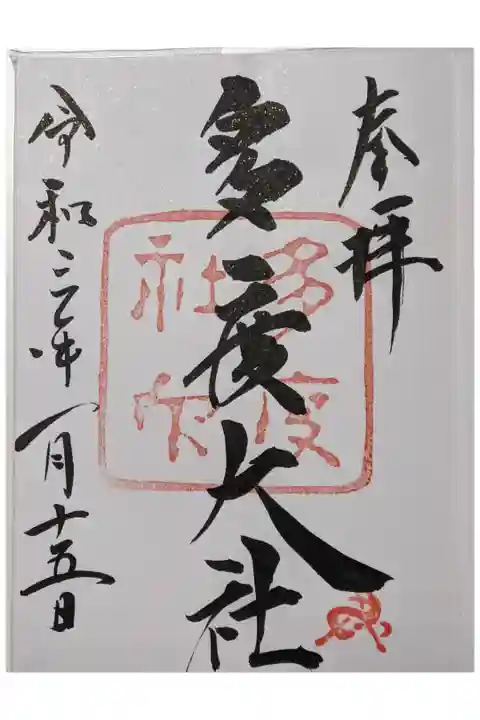 奉拝
多度大社
多度
社
令和三年八月十五日